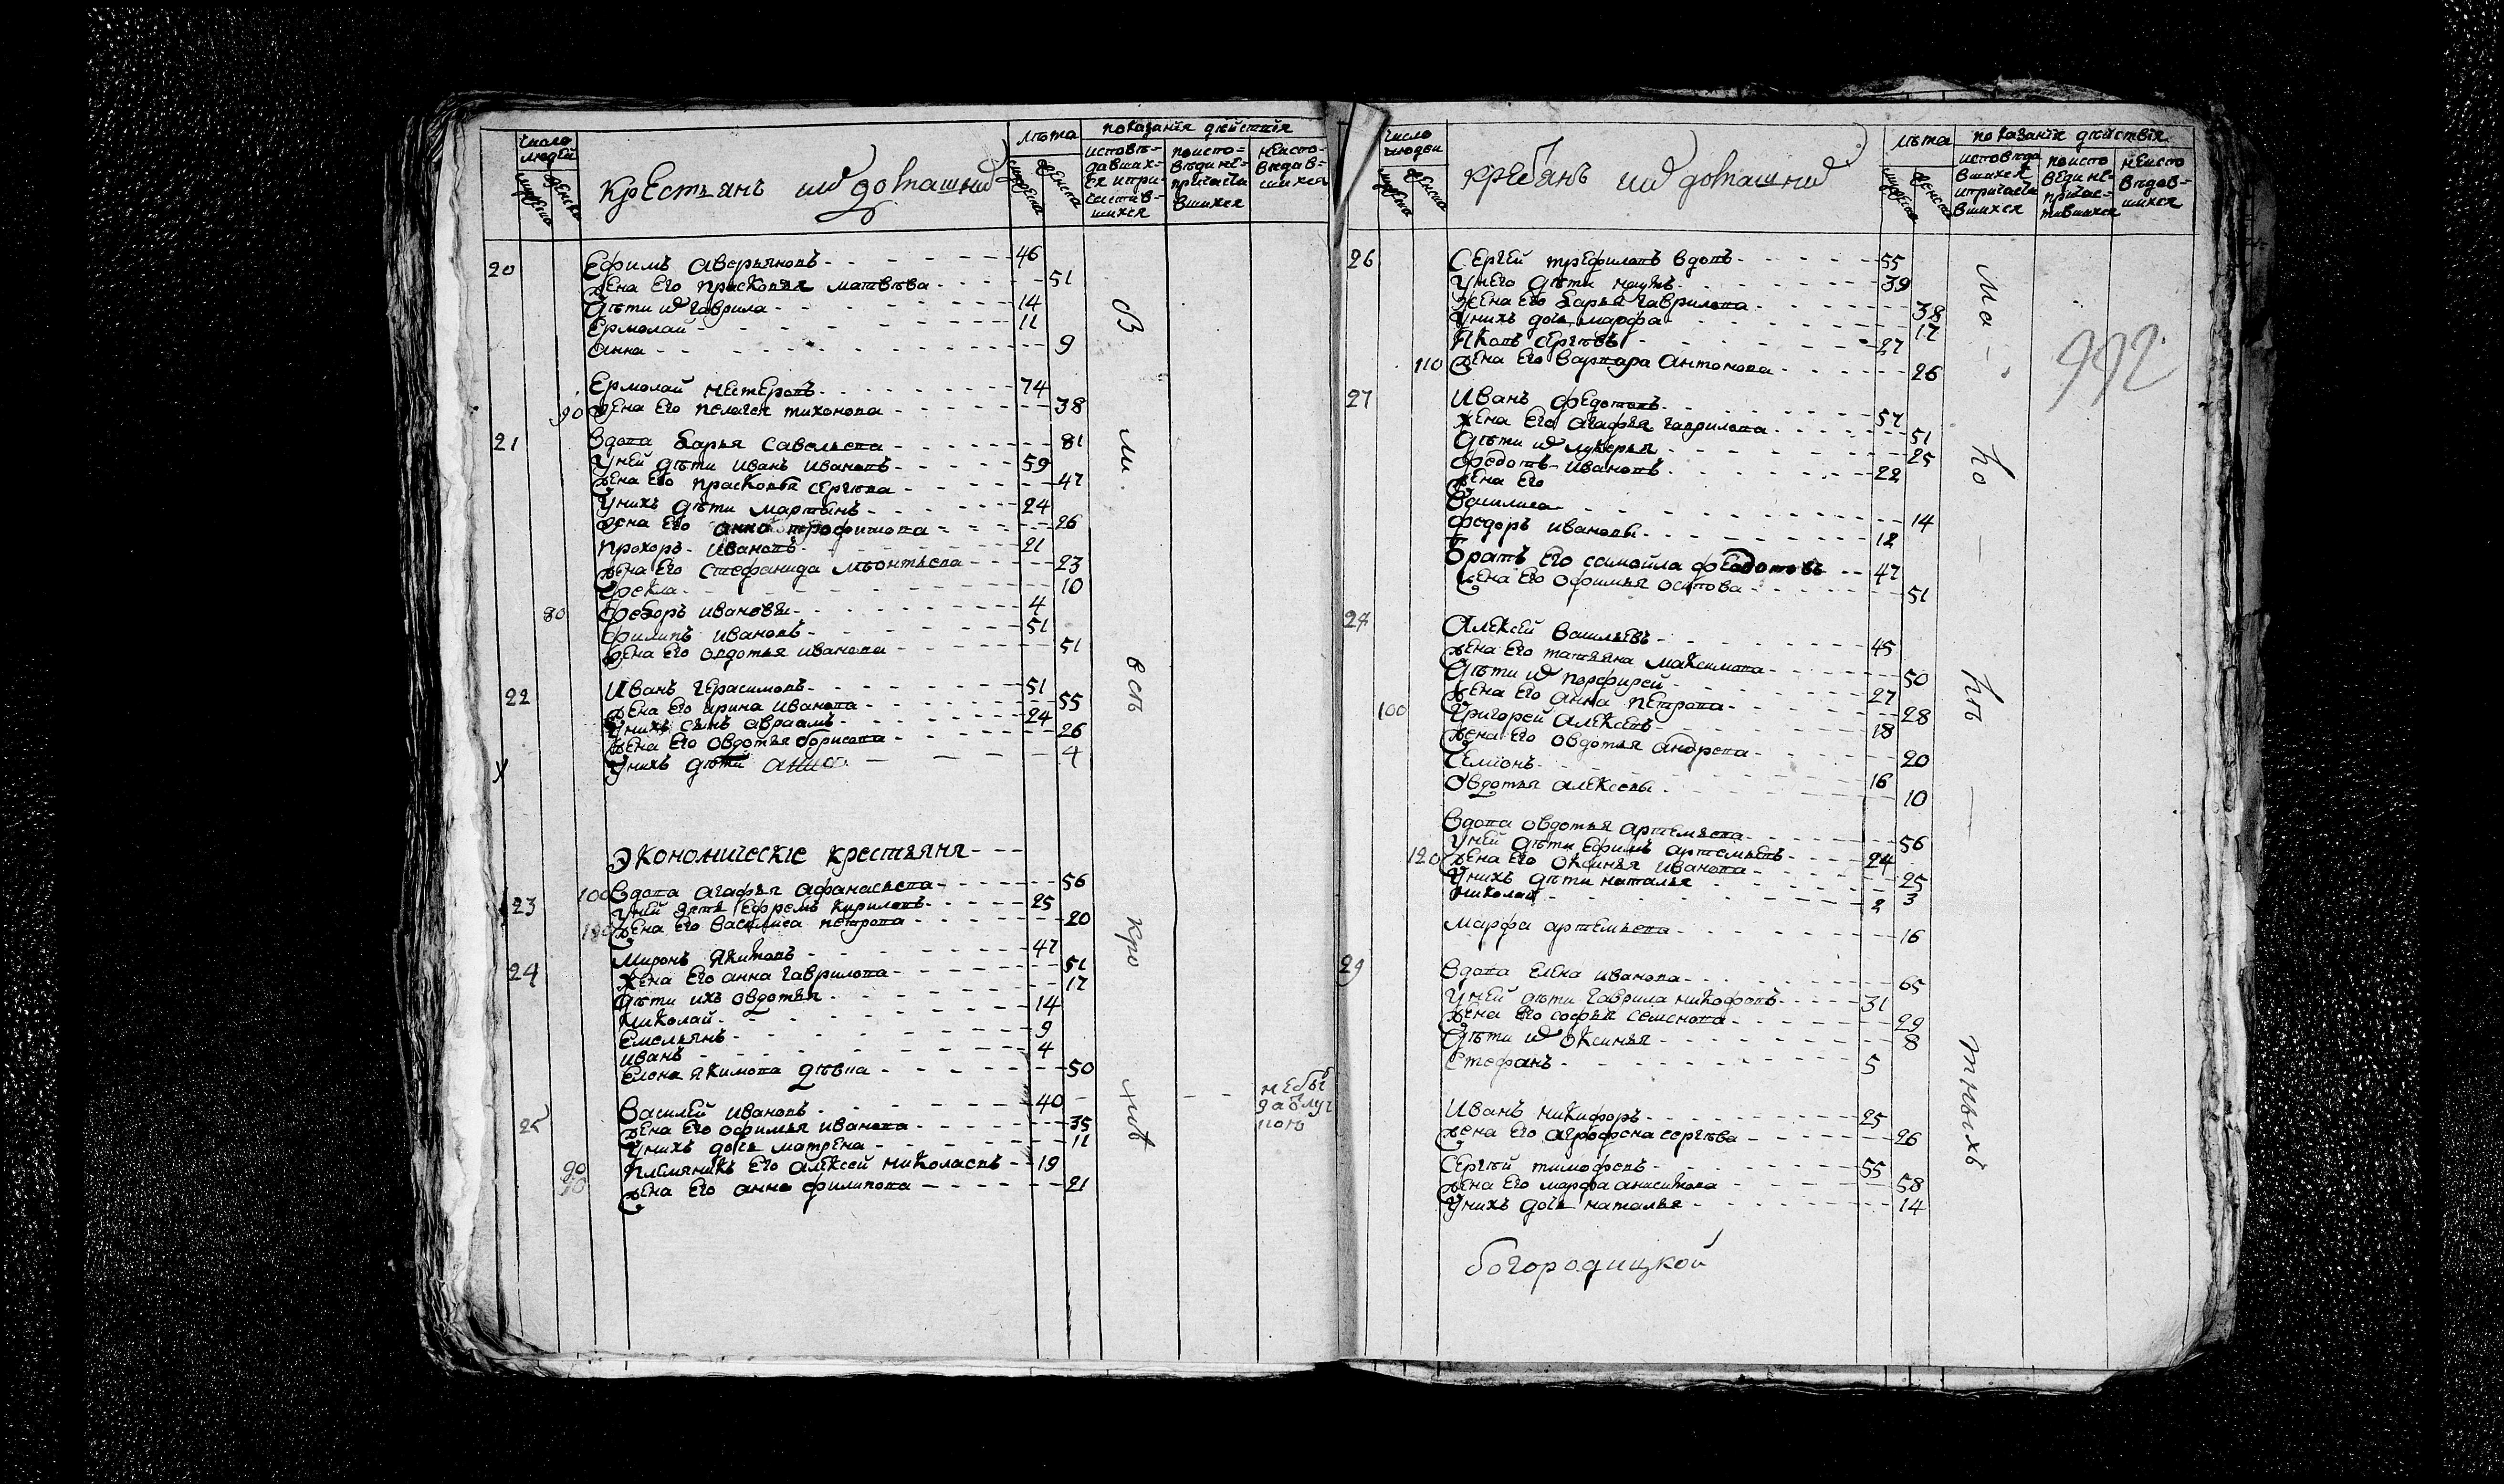 число людей
мужеска
женска
крестьянъ и ихъ домашнихъ
лѣта
мужеска
женска
показанія дѣйствія
исповѣдавшихся и причастившихся
исповѣдни не причастившихся
неисповѣдавшихся
20 Ефимъ Аверьяновъ 46
жена Его прасковья матвѣева 51
дѣти их гаврила 14
Ермолай 11
Анна 9
Ермолай нестеровъ 74
90 жена Его пелагея тихонова 38
21 вдова дарья савельева 81
у ней дѣти иванъ ивановъ 59
жена Его прасковья сергѣва 47
у нихъ дѣти мартынъ 24
жена Его анна трофимова 26
прохоръ ивановъ 21
жена Его стефанида лѣонтьева 23
фекла 10
80 федоръ ивановы 4
филипъ ивановъ 51
жена Его овдотья иванова 51
22 Иванъ герасимовъ 51
жена Его ирина иванова 55
у нихъ сынъ авраамъ 24
жена Его овдотья борисова 26
у нихъ дѣти 4
Экономическіе крестьяня
100 вдова агафья афанасьева 56
23 у ней дѣти Ефремъ кириловъ 25
жена Его василиса петрова 20
миронъ якимовъ 47
24 жена Его анна гаврилова 51
дѣти ихъ овдотья 17
николай 14
емельянъ 9
иванъ 4
елена якимова дѣвка 50
василей ивановъ 40
25 жена Его офимья иванова 35
у нихъ дочь матрена 11
90 племяникъ Его алексей николаевъ 19
жена Его анна филипова 21
В ш. всѣ кро хивъ
небы
за блуч
ною
число людей
мужеска
женска
крестьянъ и ихъ домашнихъ
лѣта
мужеска
женска
показаніе дѣйствія
исповѣдавшихся и причастившихся
поисповѣдни не причастившихся
неисповѣдавшихся
26 Сергей трефиловъ вдовъ 55
у него дѣти наумъ 39
жена Его дарья гаврилова 38
у нихъ дочь марфа 17
яковъ сергѣвъ 27
110 жена Его варвара антонова 26
27 Иванъ федотовъ 57
жена Его агафья гаврилова 51
дѣти их лукерья 25
федотъ ивановъ 22
жена Его
Василиса 14
федоръ ивановы 12
братъ Его самойла федотовъ 47
жена Его офимья осипова 51
28 Алексей васильевъ 45
жена Его татьяна максимова 50
дѣти их порфирей 27
жена Его анна петрова 28
100 григорей алексевъ 18
жена Его овдотья андрева 20
семіонъ 16
овдотья алексевы 10
вдова овдотья артемьева 56
у ней дѣти Ефимъ артемьевъ 24
120 жена Его оксинья иванова 25
у нихъ дѣти наталья 3
николай 2
марфа артемьева 16
29 вдова елена иванова 65
у ней дѣти гаврила никофоровъ 31
жена Его софья семенова 29
дѣти их оксинья 8
стефанъ 5
Иванъ никифоръ 25
жена Его агрофена сергѣва 26
Сергѣй тимофевъ 55
жена Его марфа анисимова 58
у нихъ дочь наталья 14
992
богородицкой